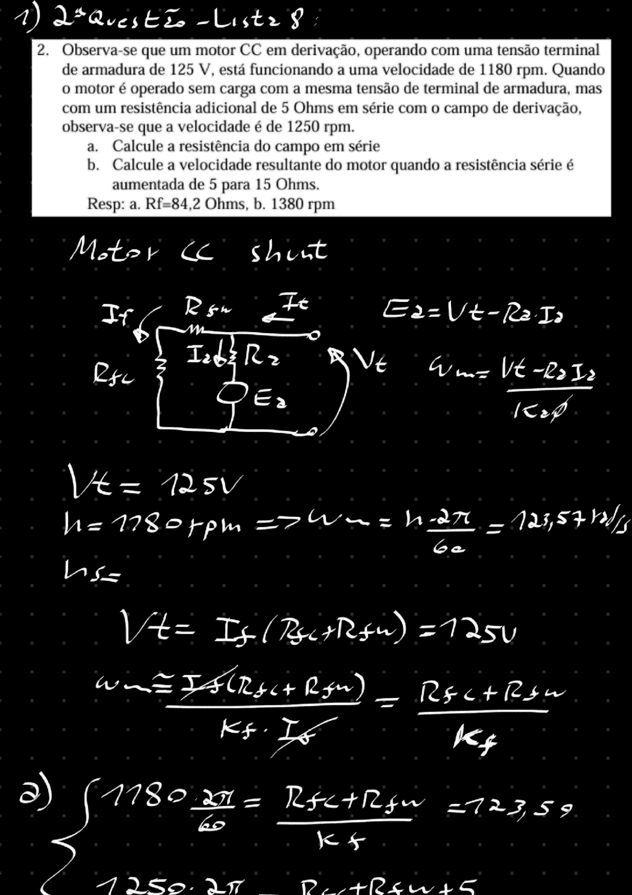 1) 2ª Questão - Lista 8:
2. Observa-se que um motor CC em derivação, operando com uma tensão terminal
de armadura de 125 V, está funcionando a uma velocidade de 1180 rpm. Quando
o motor é operado sem carga com a mesma tensão de terminal de armadura, mas
com um resistência adicional de 5 Ohms em série com o campo de derivação,
observa-se que a velocidade é de 1250 rpm.
a. Calcule a resistência do campo em série
b. Calcule a velocidade resultante do motor quando a resistência série é
aumentada de 5 para 15 Ohms.
Resp: a. Rf=84,2 Ohms, b. 1380 rpm
Motor CC shunt
If Rfw It Ea = Vt - Ra·Ia
Rfc Ia Ra Vt ωm = (Vt - RaIa)/(Kaφ)
Ea
Vt = 125V
n = 1180rpm => ωm = n·2π/60 = 123,57 rad/s
ns=
Vt = If(Rfc+Rfw) = 125V
ωm ≅ If(Rfc+Rfw)/(Kf·If) = (Rfc+Rfw)/Kf
a) { 1180·2π/60 = (Rfc+Rfw)/Kf = 123,59
1250·2π = Rfc+Rfw+5